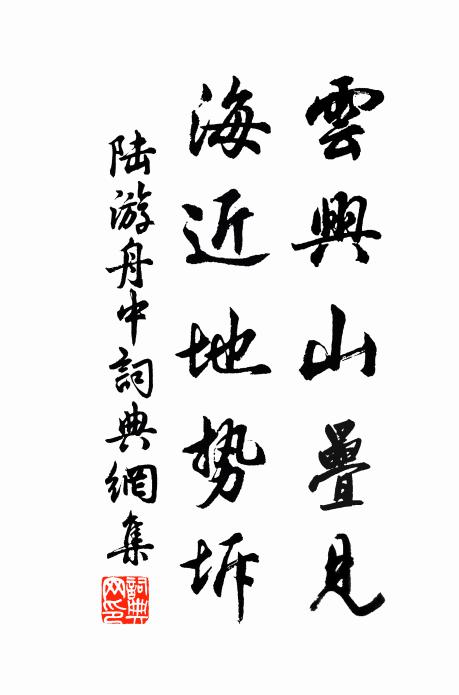 雲興山疊見
海近地势坼
陆游舟中詞典網集
詞典网印